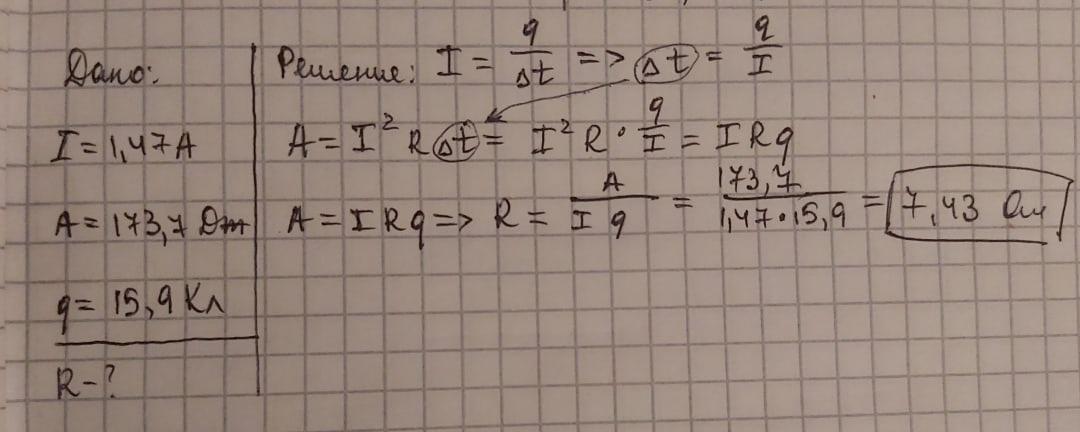 Дано:
I = 1,47 А
A = 173,7 Дж
q = 15,9 Кл
R - ?
Решение: I = q/Δt => Δt = q/I
A = I² R Δt = I² R · q/I = I R q
A = I R q => R = A/(I q) = 173,7/(1,47 · 15,9) = 7,43 Ом